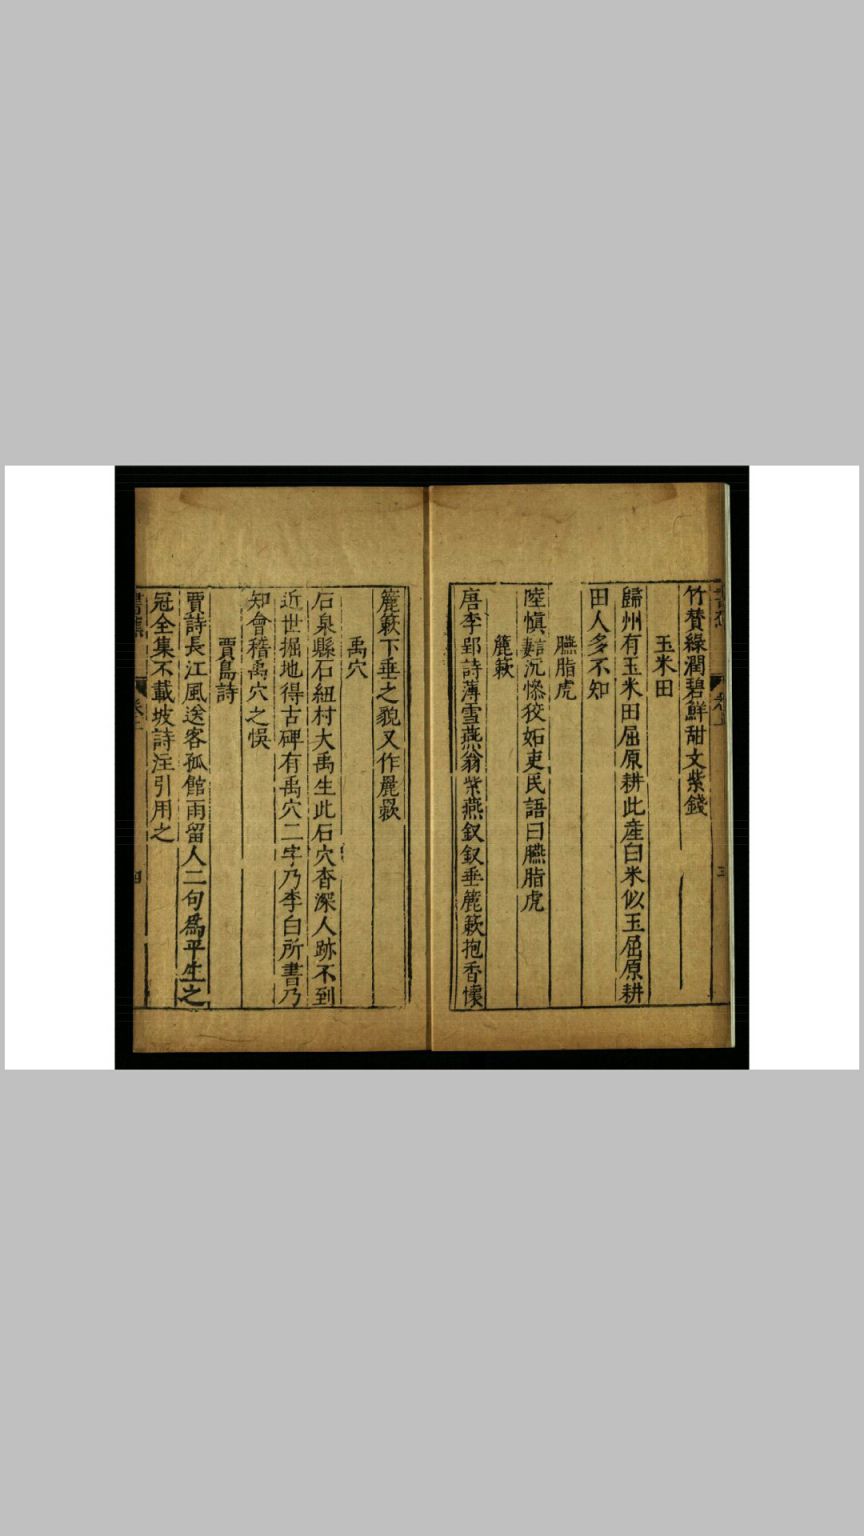 竹賛綠潤碧鮮甜文紫錢
玉米田
歸州有玉米田屈原耕此産白米似玉屈原耕
田人多不知
臙脂虎
陸慎言妻沉慘狡妬吏民語曰臙脂虎
簏簌
唐李郢詩薄雪燕蓊紫燕釵釵垂簏簌抱香懷
簏簌下垂之貌又作麗㪖
禹穴
石泉縣石紐村大禹生此石穴杳深人跡不到
近世掘地得古碑有禹穴二字乃李白所書乃
知會稽禹穴之悞
賈島詩
賈詩長江風送客孤館雨留人二句爲平生之
冠全集不載坡詩注引用之